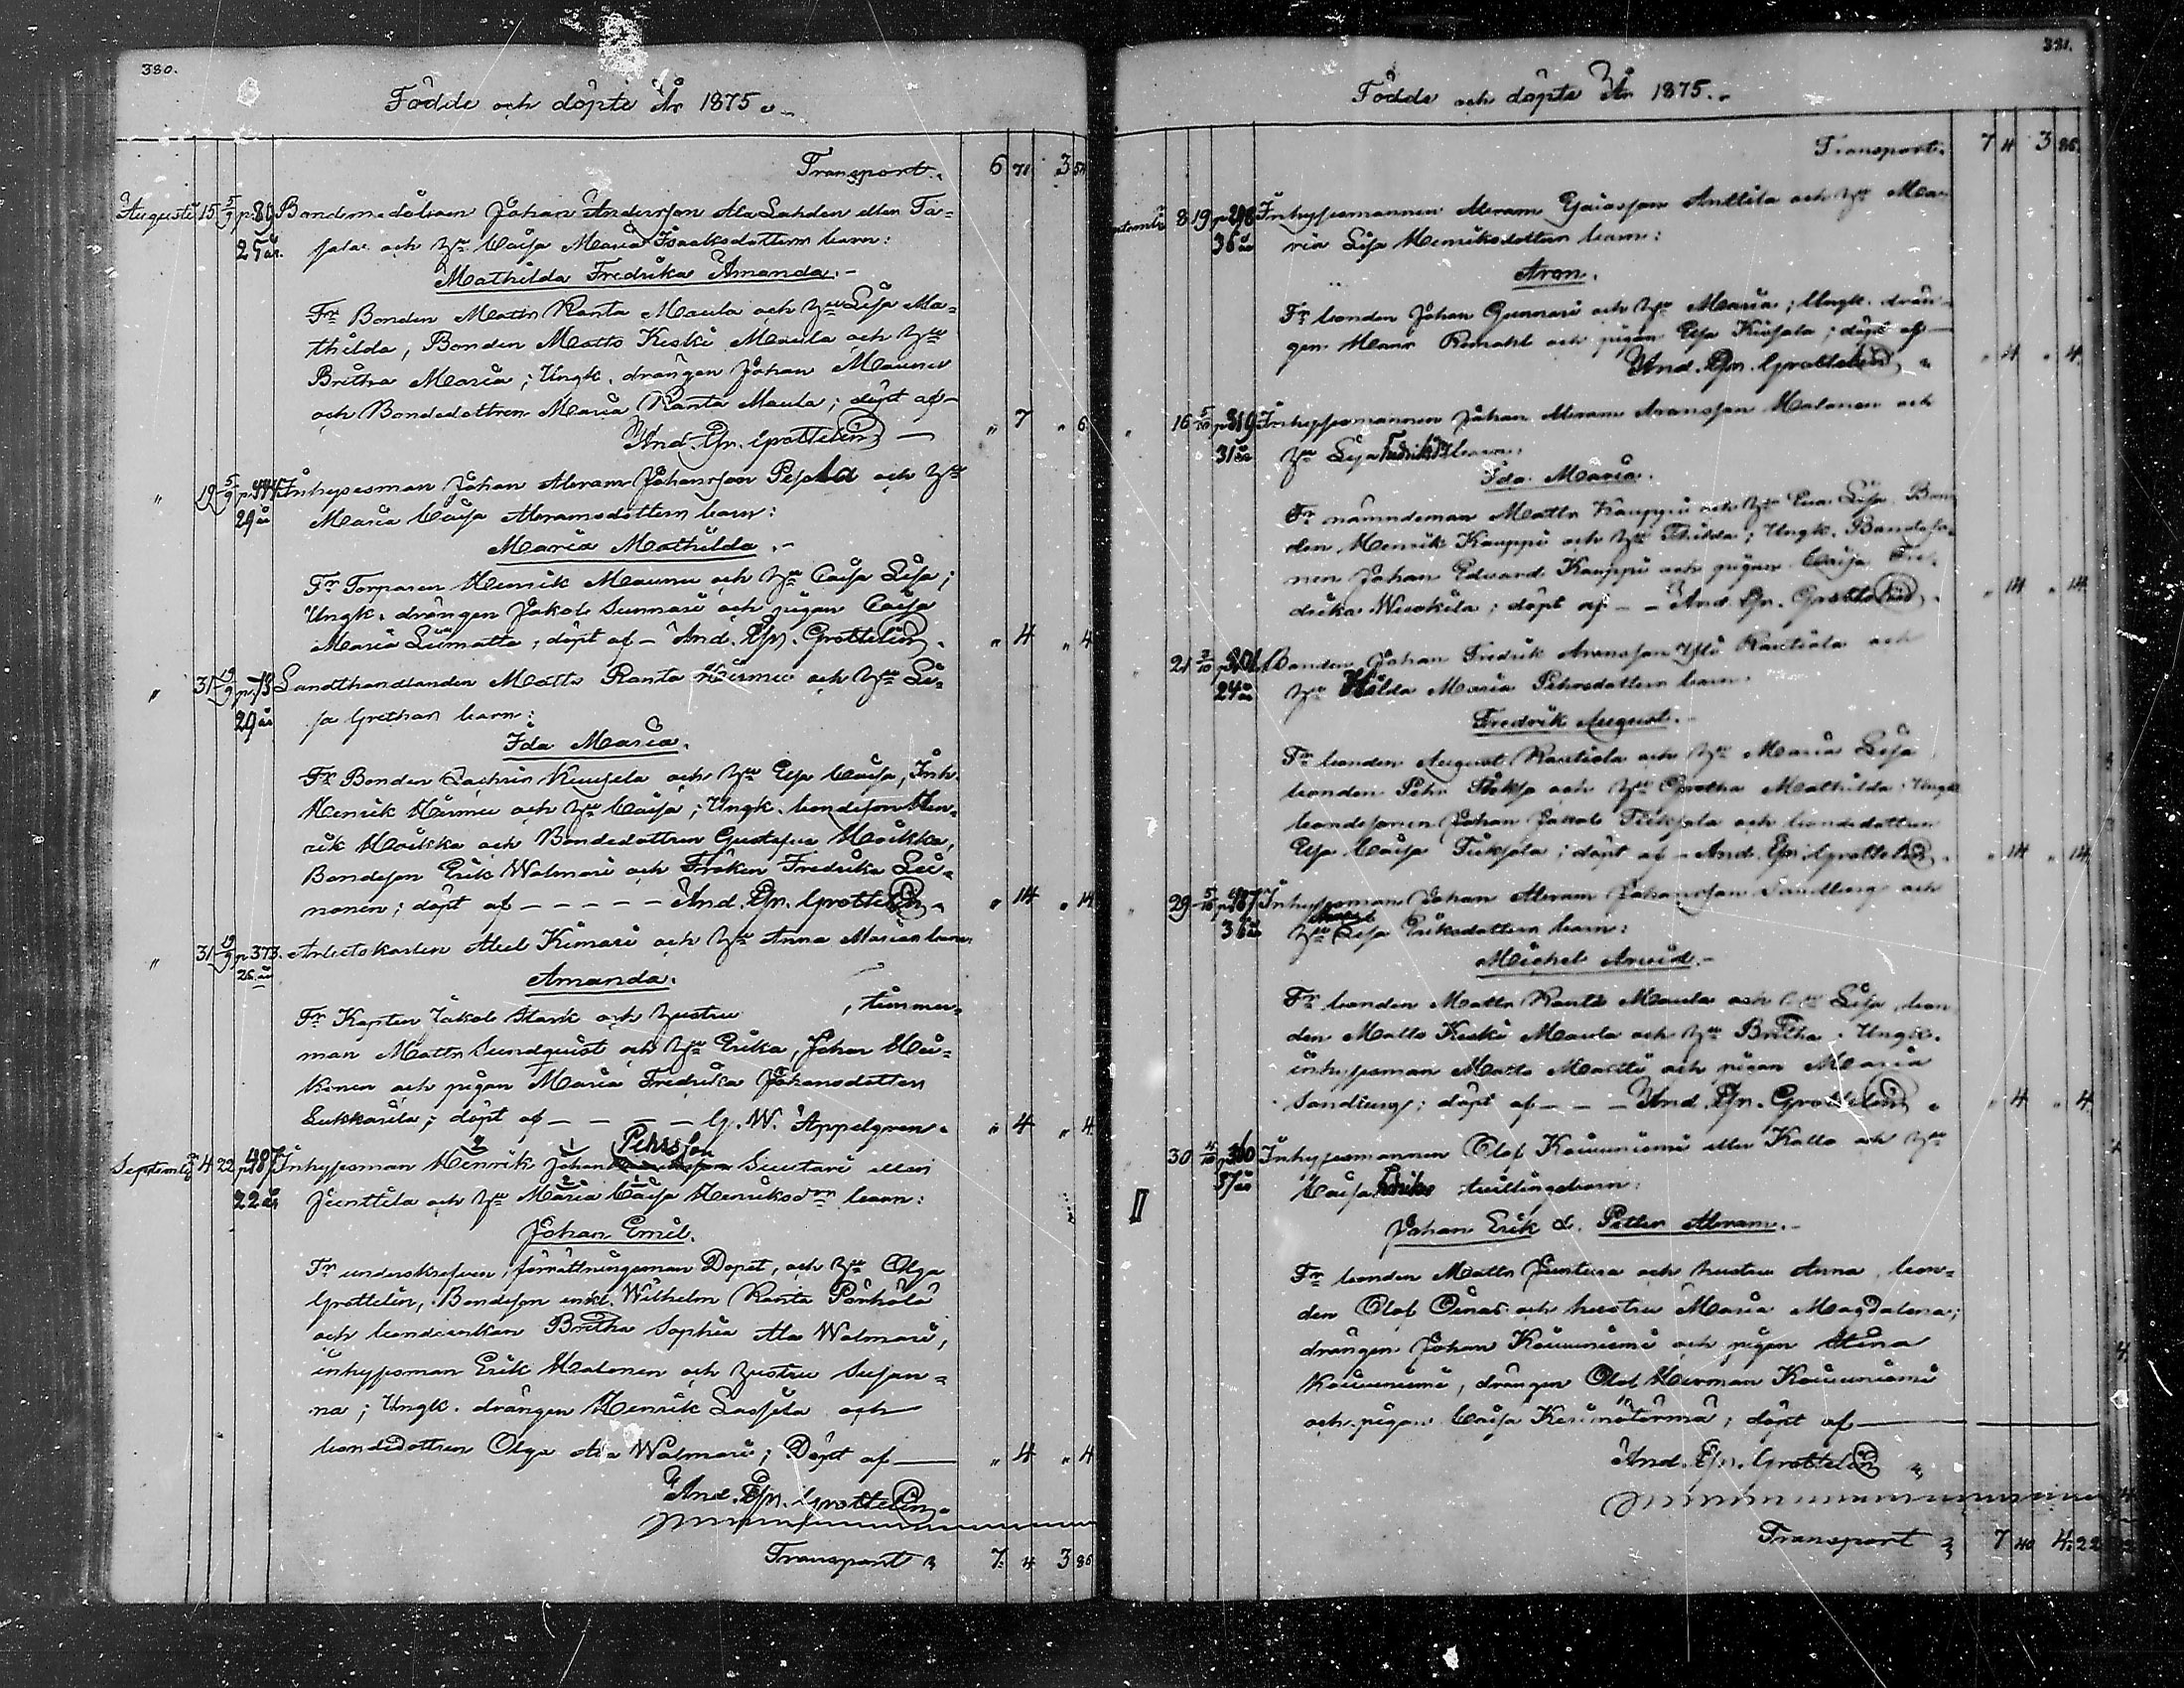 380.
Födde och döpte År 1875.
Transport. 6 71 3 54
Augusti 15 5/9 p. 89 Bondemedolsven Johan Andersson Ala Lahden eller Ta-
25 år. sala och h:u Caisa Maria Isaaksdotters barn:
Mathilda Fredrika Amanda.-
Fr Bonden Matts Ranta Maula och h:u Lisa Ma-
thilda, Bonden Matts Keski Maula och h:u
Britha Maria; Ungk. drängen Johan Maunu
och Bondedottren Maria Ranta Maula; döpt af-
And. Efr. Grottelin — " 7 " 6
" 19 5/9 p. 444 Inhysesman Johan Abram Johansson och h:u
29 år Maria Caisa Abramsdotters barn:
Maria Mathilda.-
Fr Torparen Henrik Maunu och h:u Caisa Lisa;
Ungk. drängen Jakob Sunnari och pigan Caisa
Maria Liimatta; döpt af - And. Efr. Grottelin. " 4 " 4
" 31 19/9 p. 73 Landthandlanden Matts Ranta Hirmu och h:u Li-
29 år sa Grethas barn:
Ida Maria.
Fr Bonden Zachris Kuusela och h:u Elsa Caisa, Inh.
Henrik Hirmu och h:u Caisa; Ungk. bondeson Hen-
rik Moikka och Bondedottren Gustafva Moikka,
Bondeson Erik Walmari och Fröken Fredrika Lei-
nonen; döpt af - - - - - And. Efr. Grottelin. " 14 " 14
" 31 19/9 p. 373. Arbetskarlen Abel Kimari och h:u Anna Marias barn
26 år Amanda.
Fr Kapten Jakob Stark och hustru , timmer-
man Matts Sundquist och h:u Erika, Johan Hei-
kinen och pigan Maria Fredrika Johansdotter
Lukkarila; döpt af - - - - G. W. Appelgren. " 4 " 4
September 4 22 p. 487 Inhysesman Henrik Johan Pehrsson Siirtari eller
22 år Junttila och h:u Maria Caisa Henriksd:rs barn:
Johan Emil.
Fr underskrefven, förrättningsman Dopet, och h:u Olga
Grottelin, Bondeson enkl. Wilhelm Ranta Parhala
och bondeenkan Britha Sophia Ala Walmari,
inhysesman Erik Halonen och hustru Susan-
na; Ungk. drängen Henrik Lassila och
bondedottren Olga Ala Walmari; Döpt af — " 4 " 4
And. Efr. Grottelin.
Transport 7. 4 3 86
381.
Födde och döpte År 1875.
Transport. 7 4 3 86.
8 19 p. 298 Inhysesmannen Abram Anttila och h:u Ma-
36 år ria Lisa Henriksdotters barn:
Aron.
Fr bonden Johan Gunnari och h:u Maria; Ungk. drän-
gen och pigan Elsa ; döpt af -
And. Efr. Grottelin. " 4 " 4
" 16 5/10 p. 319 Inhysesmannen Johan Abram Aronsson Halonen och
31 år h:u Lisa barn:
Ida Maria.
Fr nämndeman Matts Kauppi och h:u Eva Lisa, Bon-
den Henrik Kauppi och h:u Thilda; Ungk. Bondeso-
nen Johan Edvard Kauppi och pigan Caisa Fre-
drika ; döpt af - - And. Efr. Grottelin. " 14 " 14
21 p. Bonden Johan Fredrik Aronsson Yli Rautiola och
24 år h:u Hilda Maria Pehrsdotters barn:
Fredrik August.-
Fr bonden August Rautiola och h:u Maria Lisa
bonden Pehr och h:u Gretha Mathilda; Ungk.
bondesonen Johan Jakob och bondedottren
Elsa Caisa ; döpt af - And. Efr. Grottelin. " 14 " 14
29 5/10 p. 487 Inhysesman Johan Abram Johansson Sandberg och
36 år h:u Lisa Eriksdotters barn:
Michel Arvid.-
Fr bonden Matts Ranta Maula och h:u Lisa, bon-
den Matts Keski Maula och h:u Britha; Ungk.
inhysesman Matts Martti och pigan Maria
Sandberg; döpt af - - - And. Efr. Grottelin. " 4 " 4
30 p. 360 Inhysesmannen Olof Kouvuniemi eller Kallo och h:u
37 år Caisa tvillingebarn:
II
Johan Erik & Petter Abram.-
Fr bonden Matts Juntura och hustru Anna, bon-
den Olof Oinas och hustru Maria Magdalena;
drängen Johan Kouvuniemi och pigan Stina
Kouvuniemi, drängen Olof Herman Kouvuniemi
och pigan Caisa ; döpt af —
And. Efr. Grottelin
Transport 7 40 4. 22